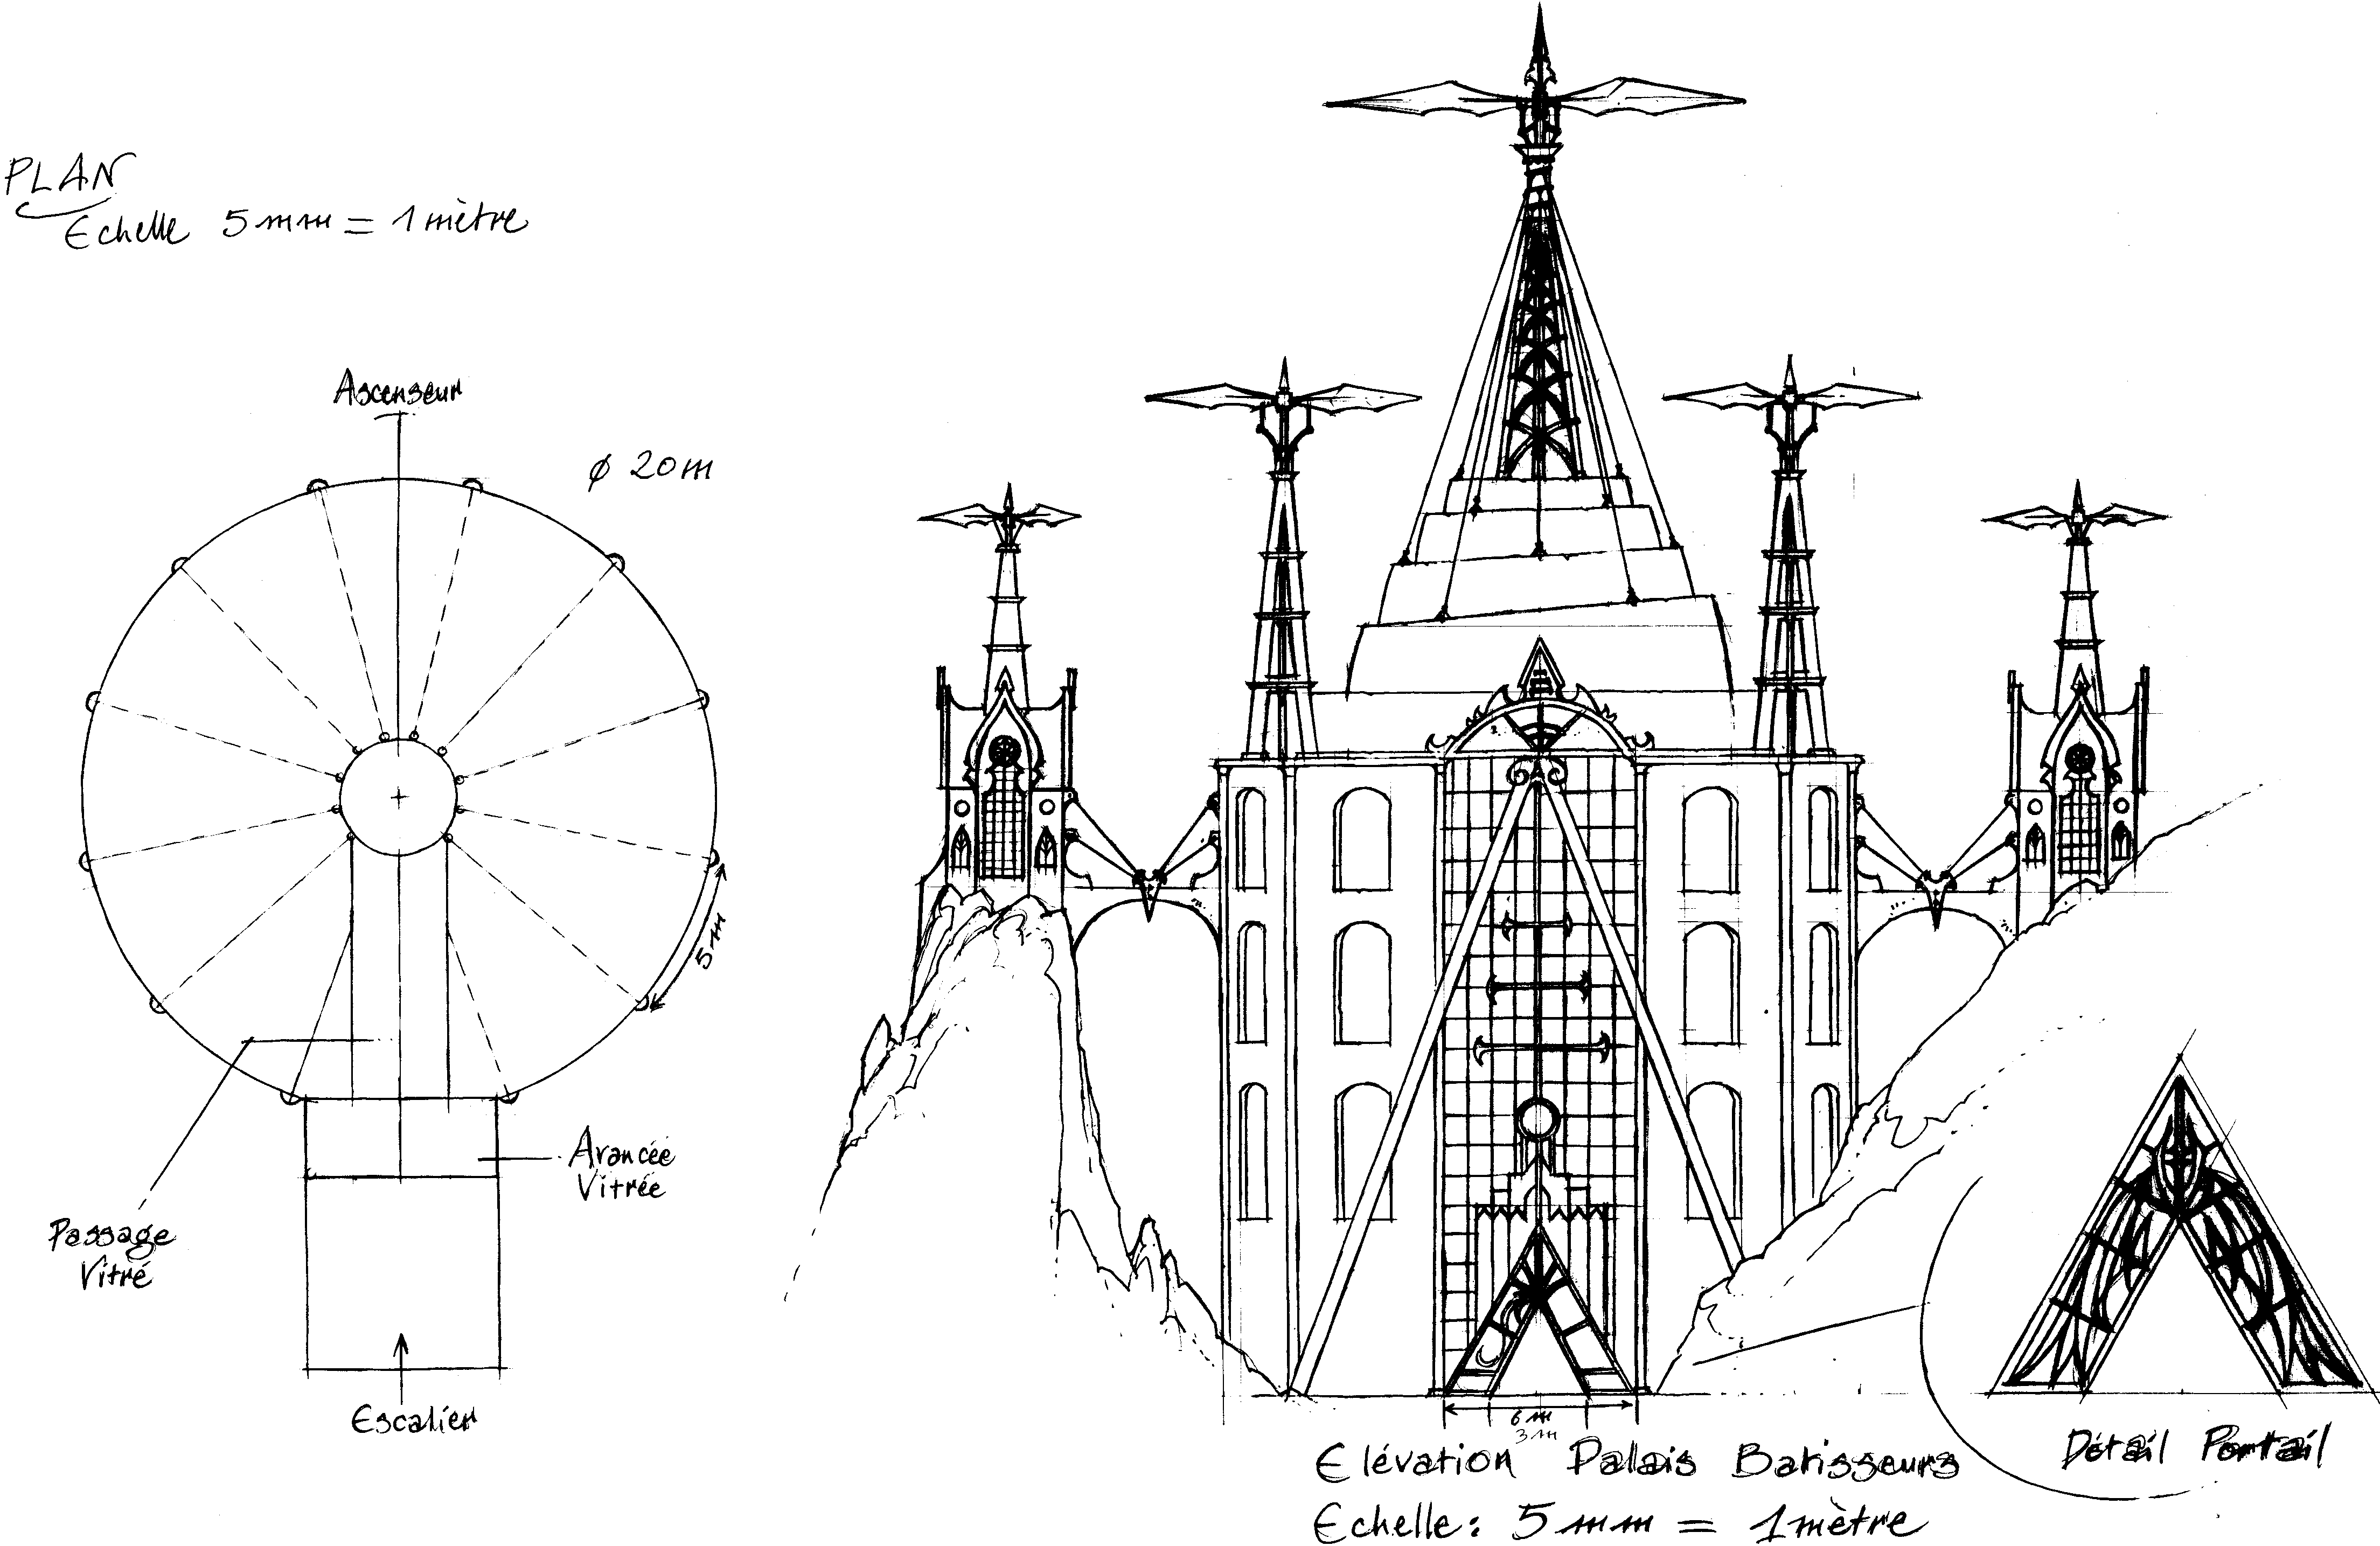 PLAN
Echelle 5mm = 1 mètre
Ascenseur
ϕ 20m
5m
Avancée
Vitrée
Passage
Vitré
Escalier
6m
3m
Elévation Palais Batisseurs
Echelle: 5mm = 1 mètre
Détail Portail